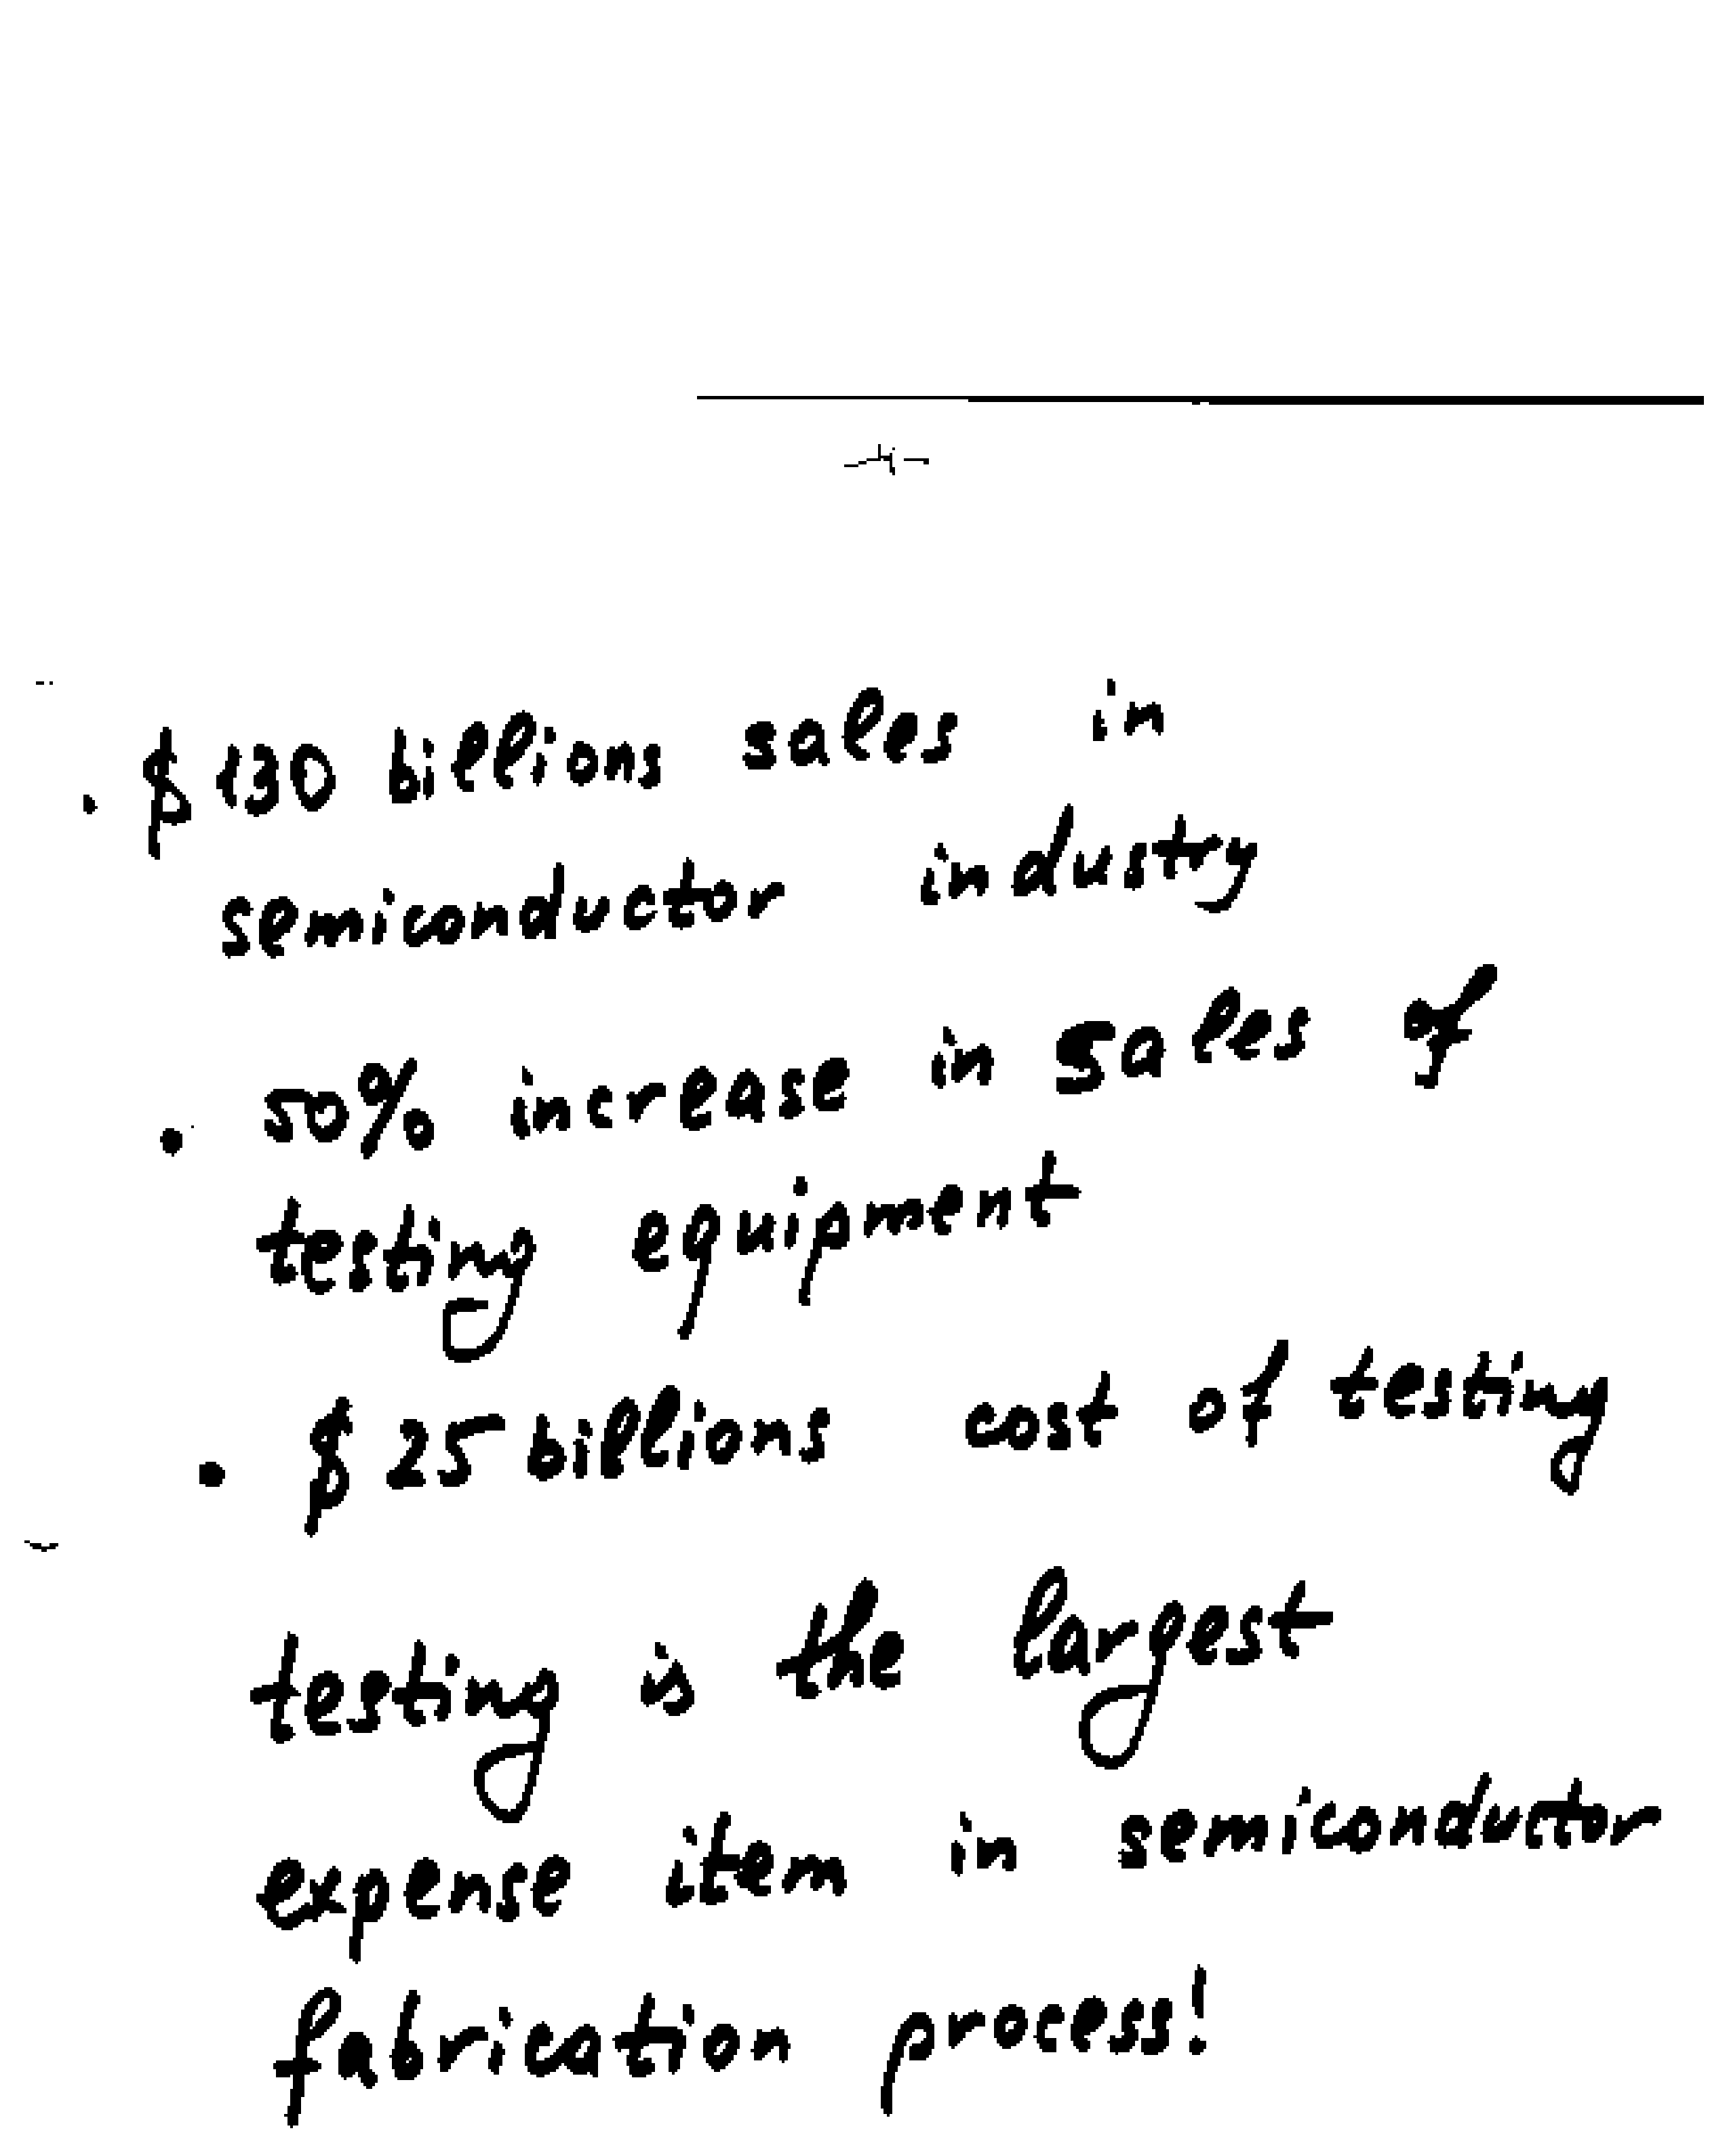 -4-
. $130 billions sales in
semiconductor industry
• 50% increase in sales of
testing equipment
• $25 billions cost of testing
testing is the largest
expense item in semiconductor
fabrication process!